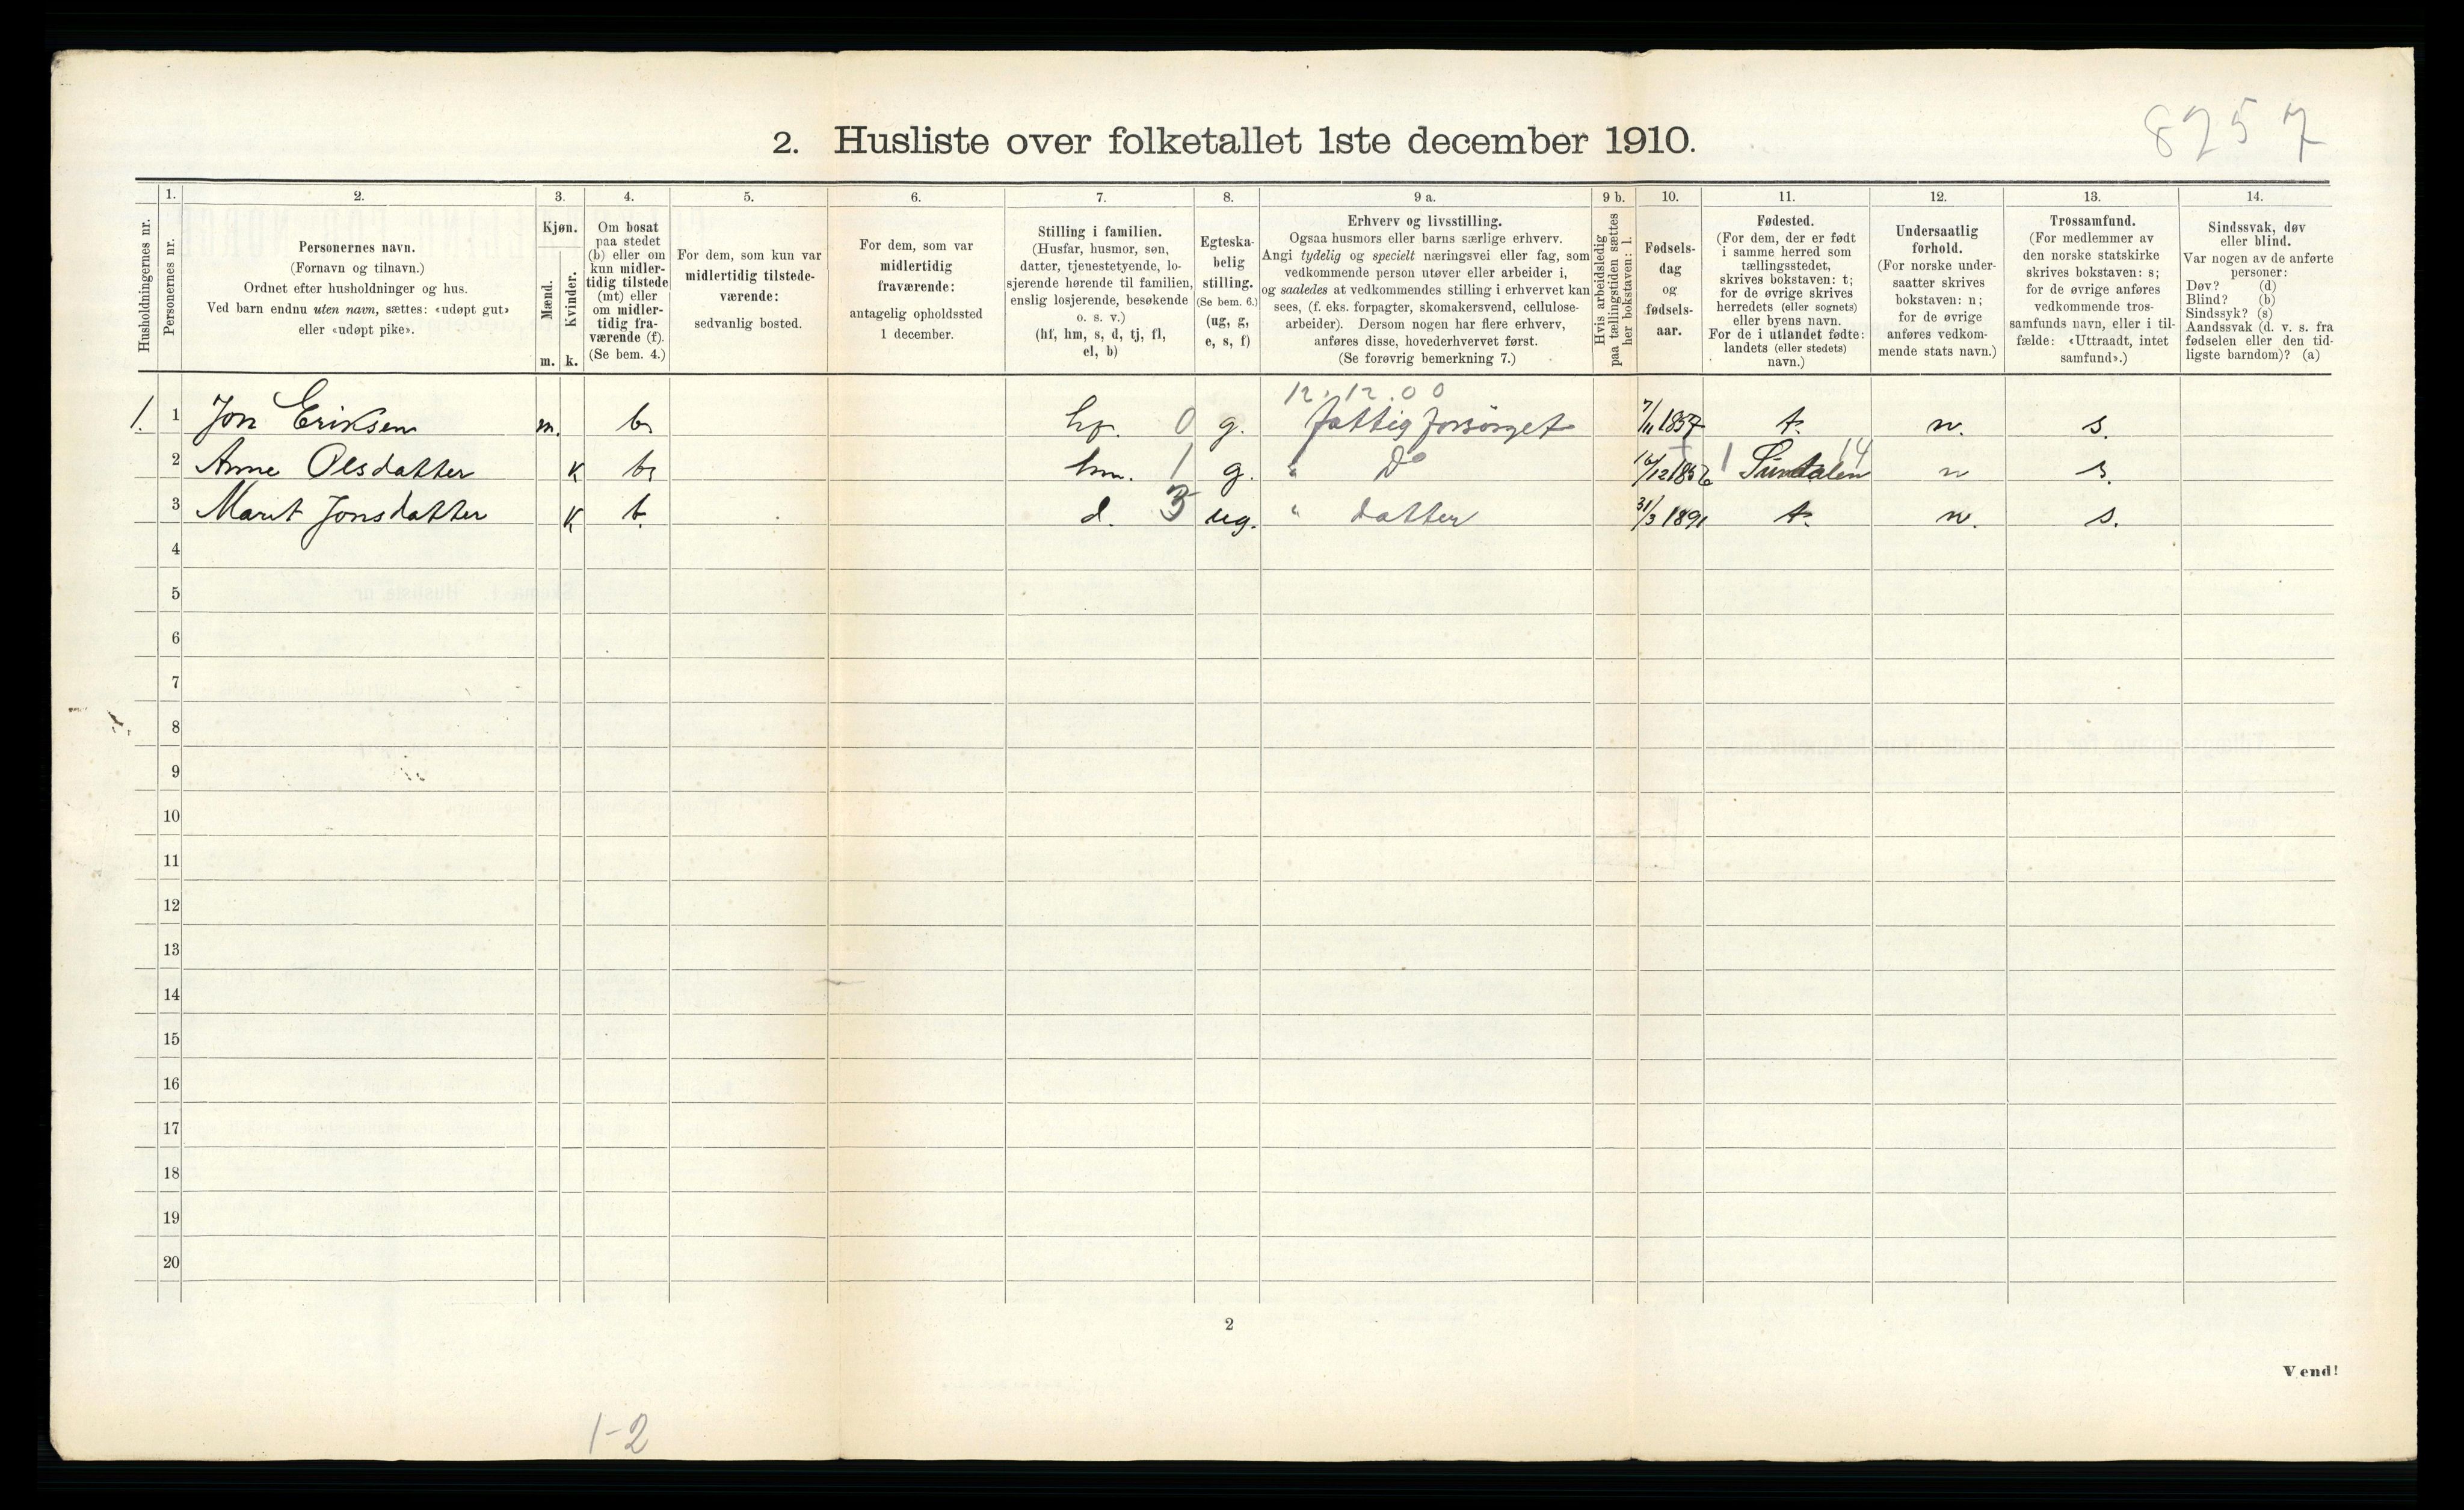 8257
2. Husliste over folketallet 1ste december 1910.
Husholdningernes nr.
1.
Personernes nr.
2.
Personernes navn.
(Fornavn og tilnavn.)
Ordnet efter husholdninger og hus.
Ved barn endnu uten navn, sættes: «udøpt gut»
eller «udøpt pike».
3.
Kjøn.
Mænd.
Kvinder.
m. k.
4.
Om bosat
paa stedet
(b) eller om
kun midler-
tidig tilstede
(mt) eller
om midler-
tidig fra-
værende (f).
(Se bem. 4.)
5.
For dem, som kun var
midlertidig tilstede-
værende:
sedvanlig bosted.
6.
For dem, som var
midlertidig
fraværende:
antagelig opholdssted
1 december.
7.
Stilling i familien.
(Husfar, husmor, søn,
datter, tjenestetyende, lo-
sjerende hørende til familien,
enslig losjerende, besøkende
o. s. v.)
(hf, hm, s, d, tj, fl,
el, b)
8.
Egteska-
belig
stilling.
(Se bem. 6.)
(ug, g,
e, s, f)
9 a.
Erhverv og livsstilling.
Ogsaa husmors eller barns særlige erhverv.
Angi tydelig og specielt næringsvei eller fag, som
vedkommende person utøver eller arbeider i,
og saaledes at vedkommendes stilling i erhvervet kan
sees, (f. eks. forpagter, skomakersvend, cellulose-
arbeider). Dersom nogen har flere erhverv,
anføres disse, hovederhvervet først.
(Se forøvrig bemerkning 7.)
9 b.
Hvis arbeidsledig
paa tællingstiden sættes
her bokstaven: l.
10.
Fødsels-
dag
og
fødsels-
aar.
11.
Fødested.
(For dem, der er født
i samme herred som
tællingsstedet,
skrives bokstaven: t;
for de øvrige skrives
herredets (eller sognets)
eller byens navn.
For de i utlandet fødte:
landets (eller stedets)
navn.)
12.
Undersaatlig
forhold.
(For norske under-
saatter skrives
bokstaven: n;
for de øvrige
anføres vedkom-
mende stats navn.)
13.
Trossamfund.
(For medlemmer av
den norske statskirke
skrives bokstaven: s;
for de øvrige anføres
vedkommende tros-
samfunds navn, eller i til-
fælde: «Uttraadt, intet
samfund».)
14.
Sindssvak, døv
eller blind.
Var nogen av de anførte
personer:
Døv? (d)
Blind? (b)
Sindssyk? (s)
Aandssvak (d. v. s. fra
fødselen eller den tid-
ligste barndom)? (a)
12.12.00
1. 1 Jon Eriksen m. b. hf. 0 g. fattigforsørget 7/11 1857 t. n. s.
2 Anne Olsdatter k b. hm. 1 g. " Do 16/12 1852 1 Sundalen 14 n s.
3 Marit Jonsdatter k b. d. 3 ug. " datter 31/3 1891 t. n. s.
4
5
6
7
8
9
10
11
12
13
14
15
16
17
18
19
20
2
Vend!
1-2